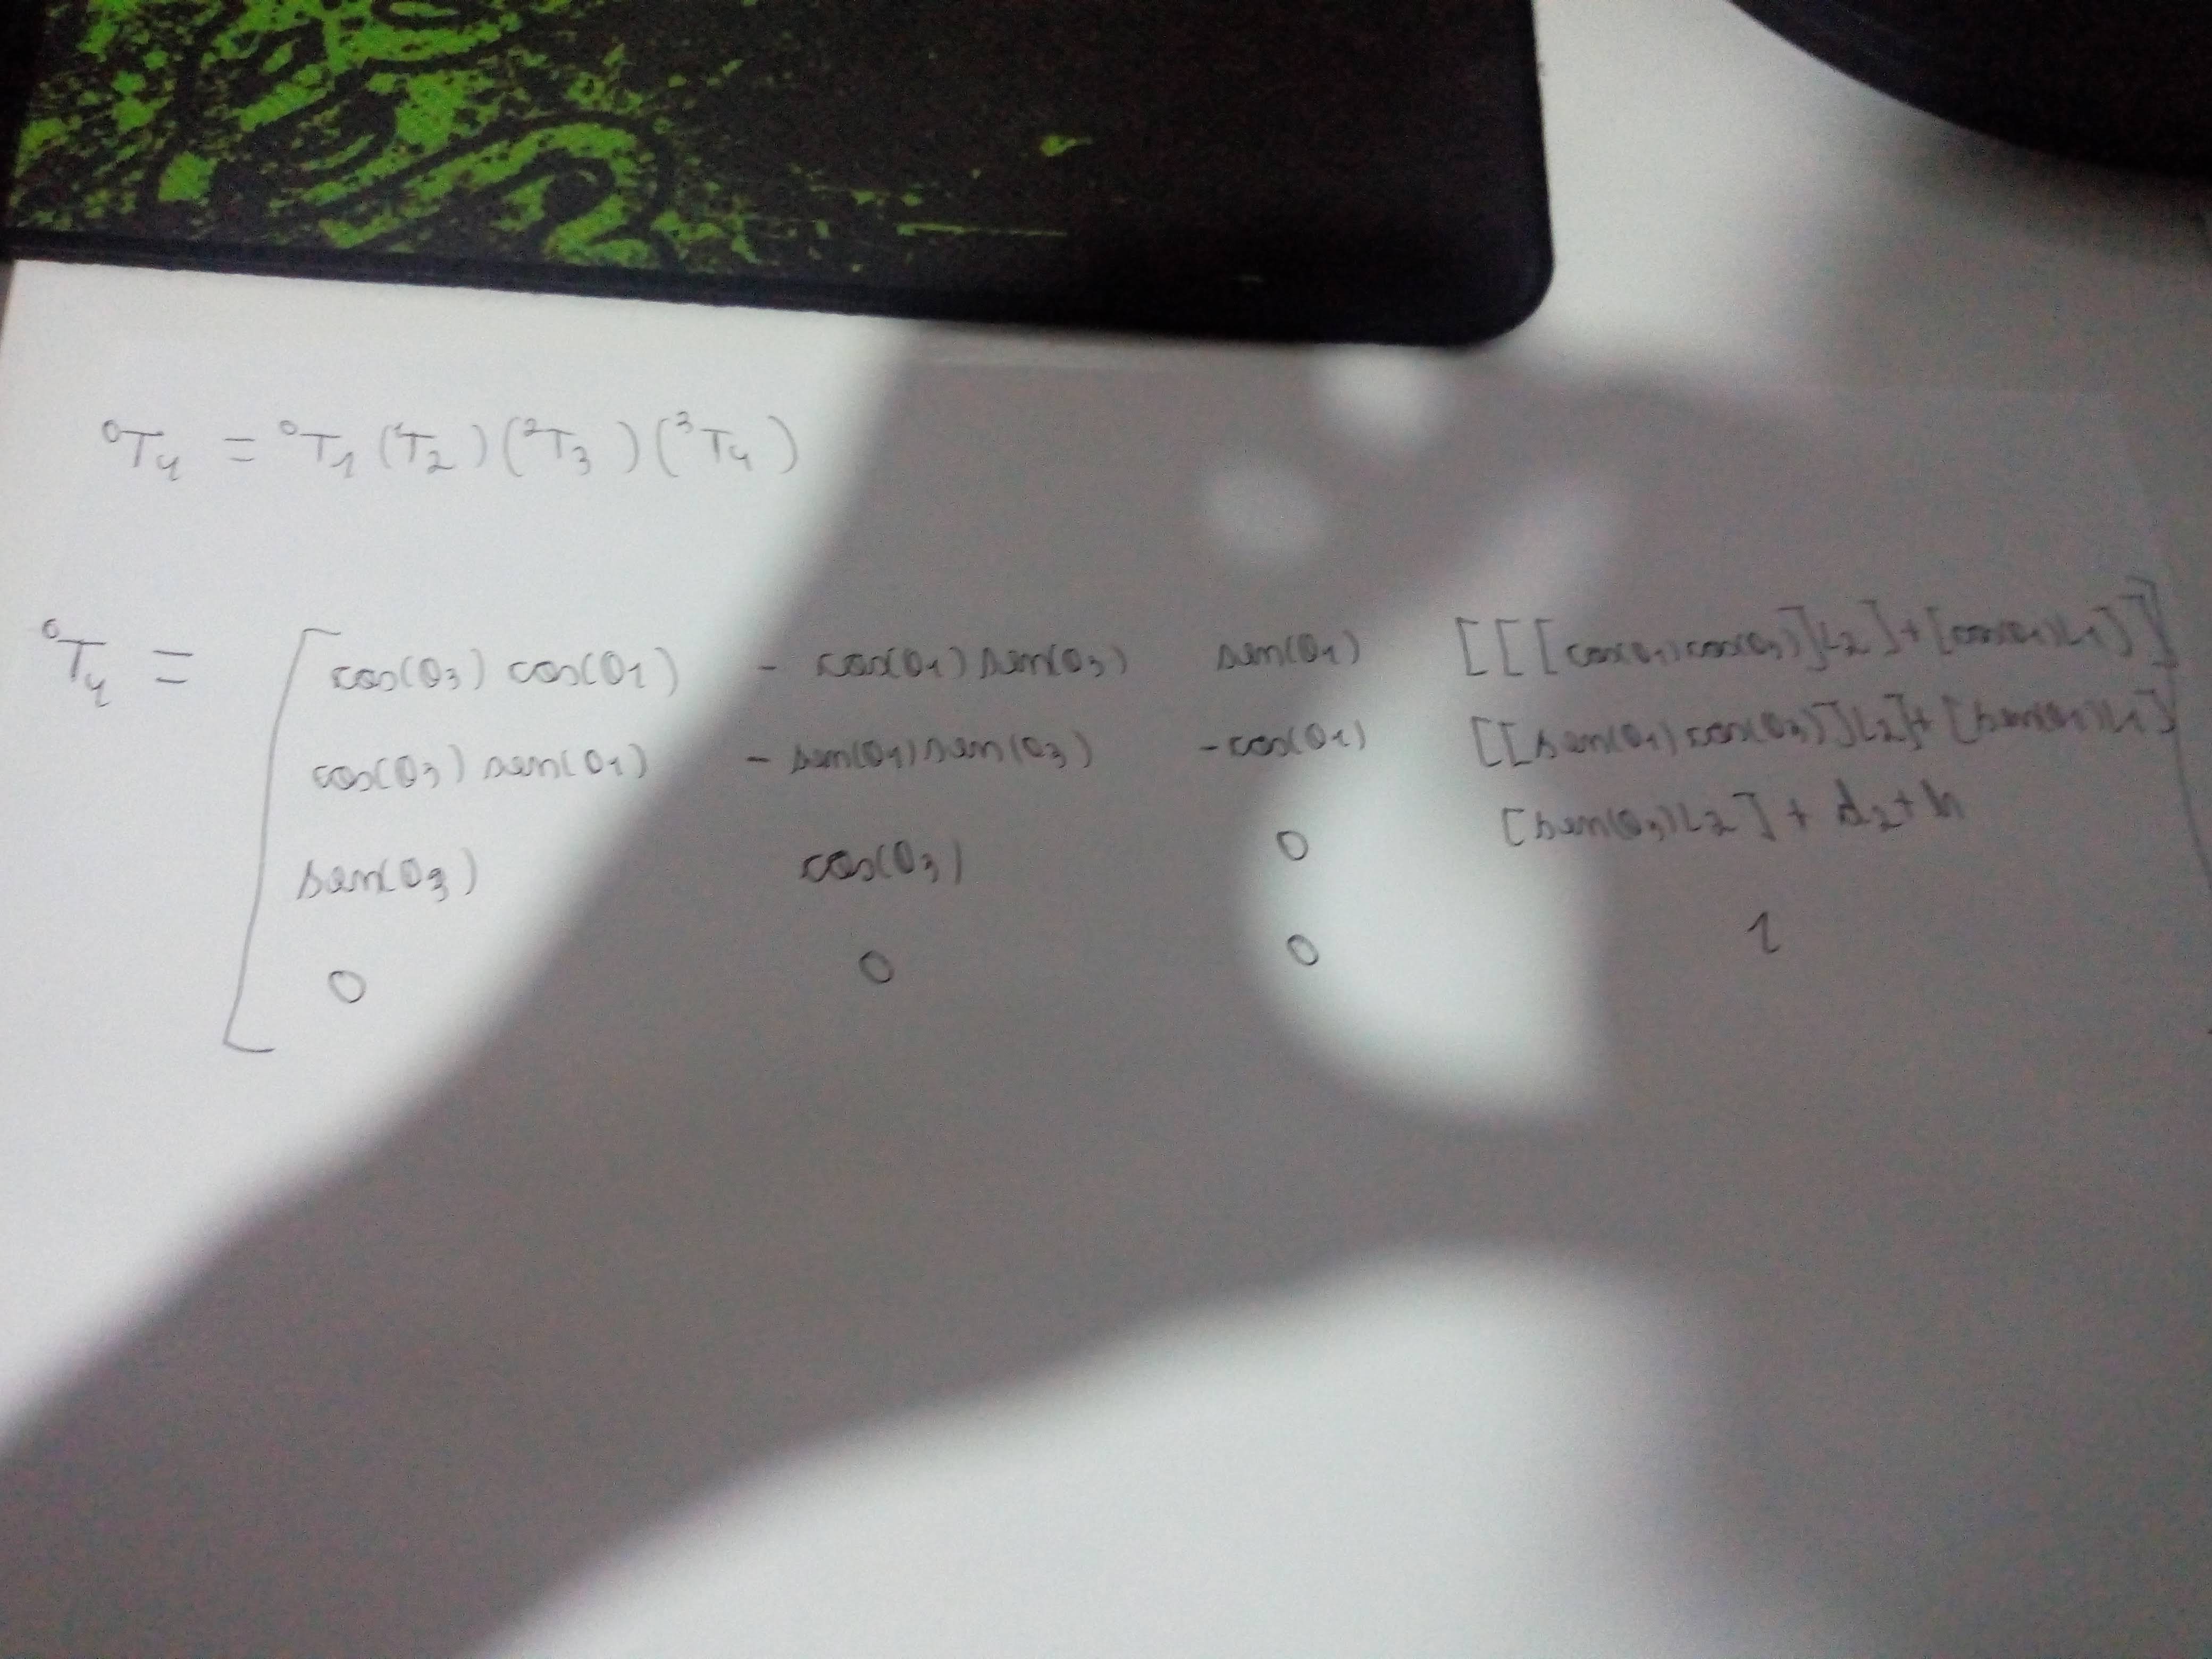 ⁰T₄ = ⁰T₁ (¹T₂) (²T₃) (³T₄)
⁰T₄ =
cos(θ₃) cos(θ₁) - cos(θ₁) sen(θ₃) sen(θ₁) [[[cos(θ₁) cos(θ₃)]L₂] + [cos(θ₁)L₁]]
cos(θ₃) sen(θ₁) - sen(θ₁) sen(θ₃) - cos(θ₁) [[sen(θ₁) cos(θ₃)]L₂] + [sen(θ₁)L₁]
sen(θ₃) cos(θ₃) 0 [sen(θ₃)L₂] + d₂ + h
0 0 0 1